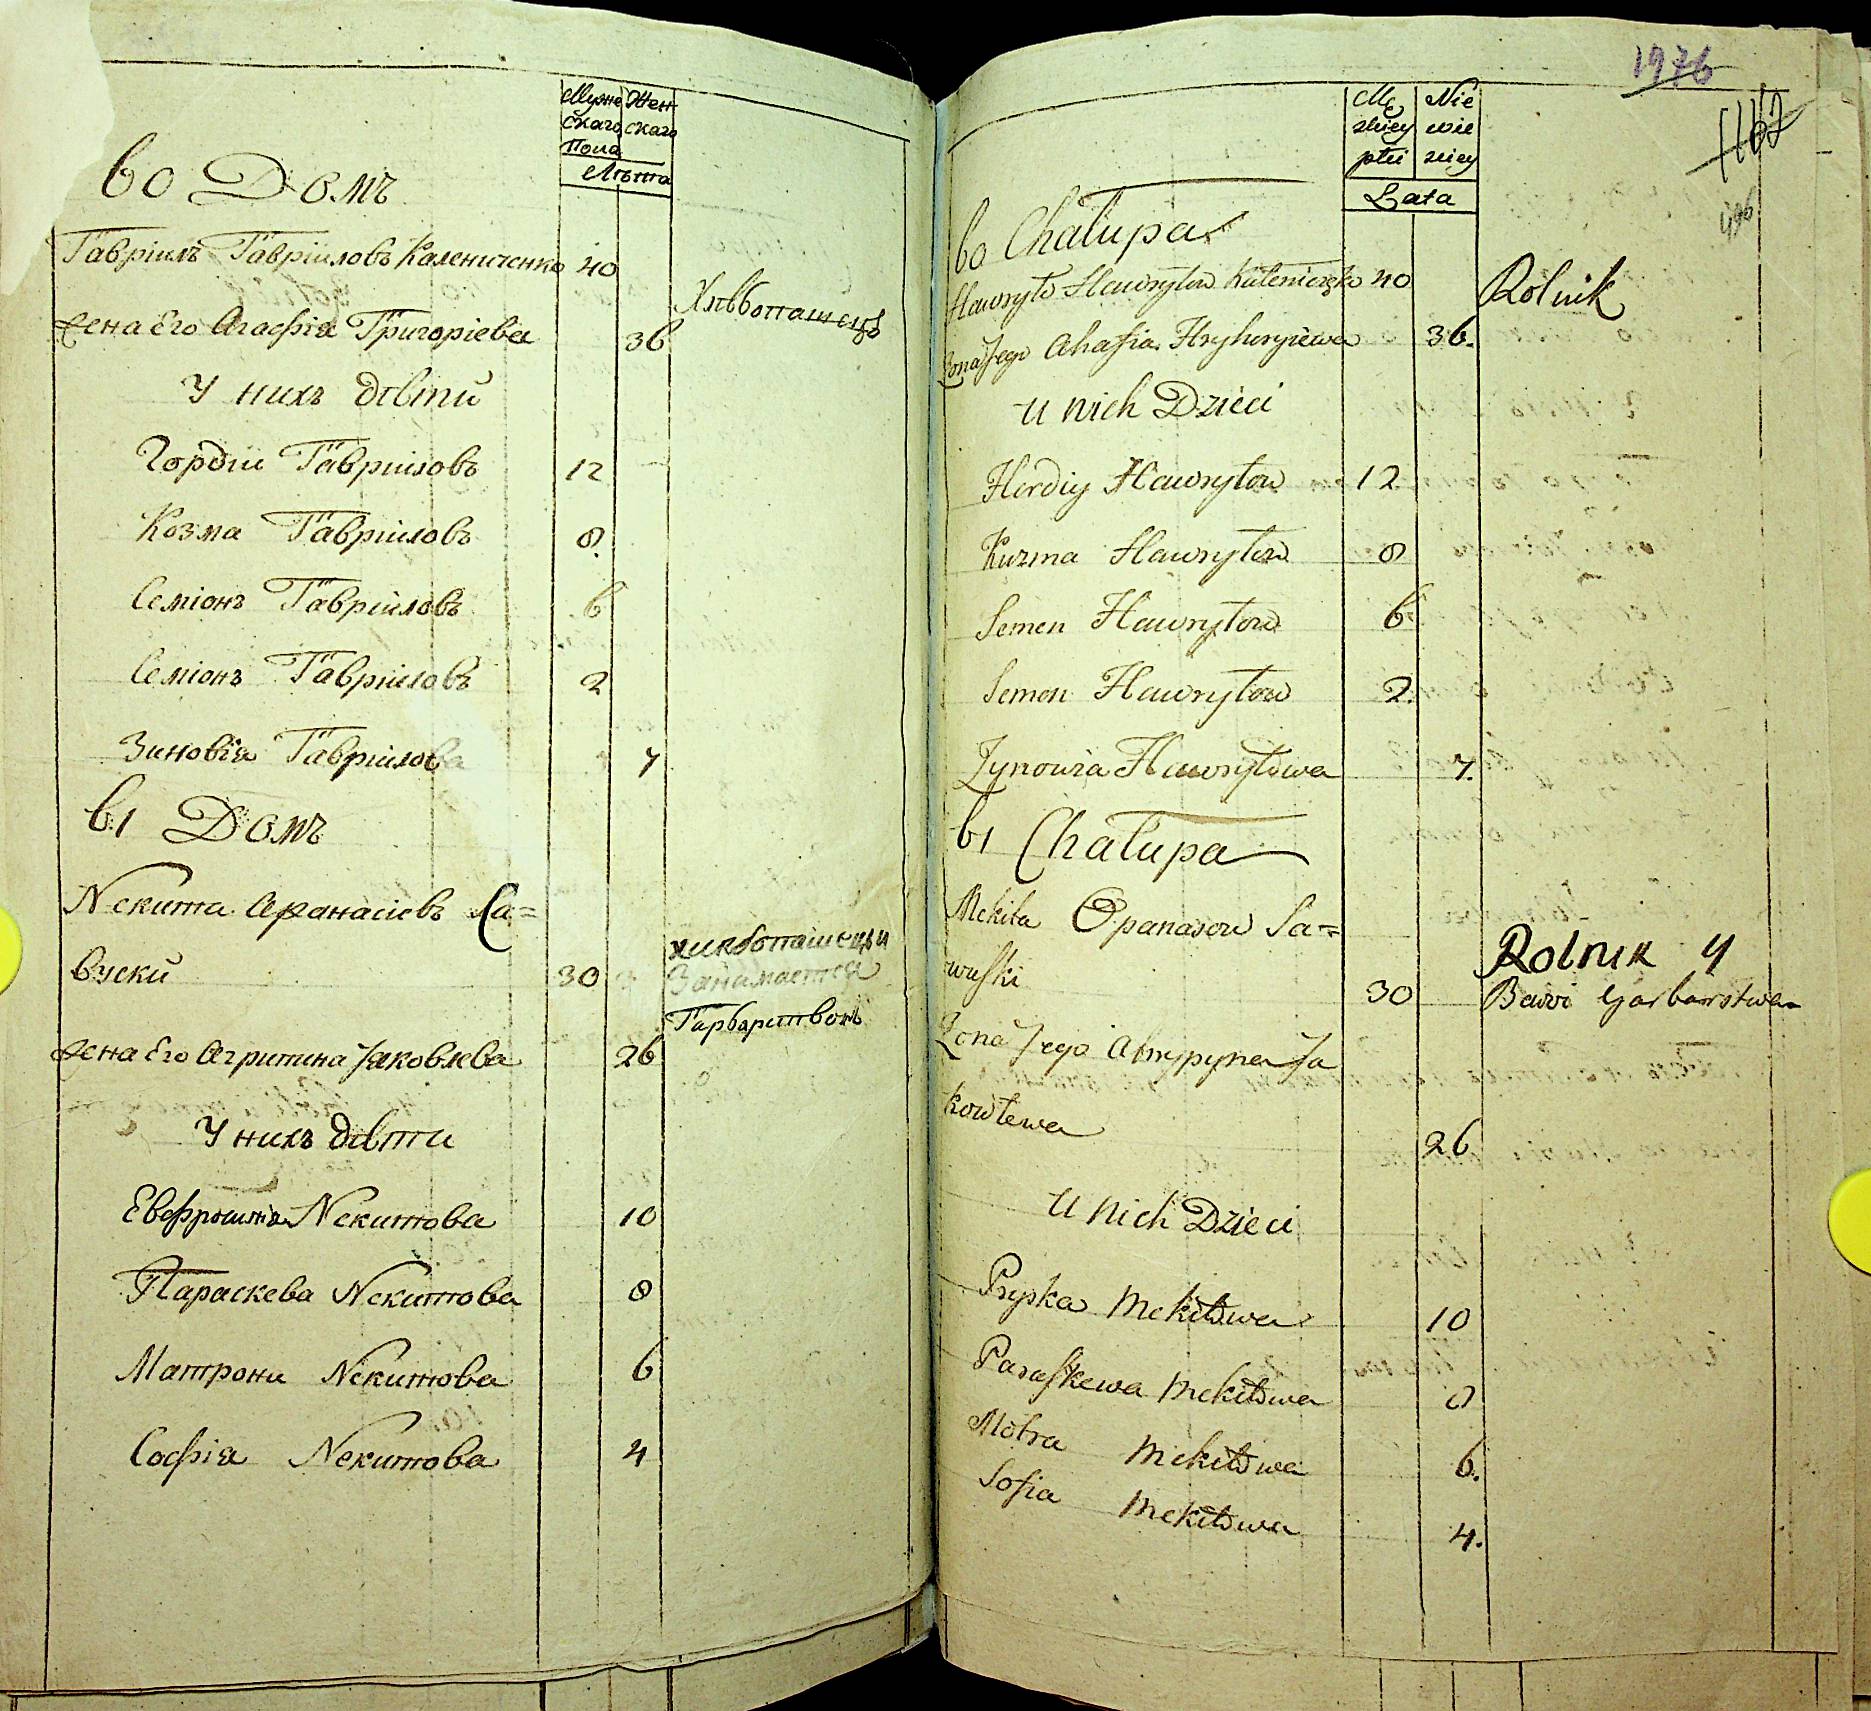 Мужескаго Пола
Женскаго
Лѣта
60 Домъ
Гавріилъ Гавріиловъ Калениченко 40
Хлѣбопашецъ
жена Его Агафія Григоріева 36
У нихъ дѣти
Гордій Гавріиловъ 12
Козма Гавріиловъ 8.
Семіонъ Гавріиловъ 6
Семіонъ Гавріиловъ 2
Зиновія Гавріилова 7
61 Домъ
Никита Афанасіевъ Са=
вуски 30
хлѣбопашецъ и
Занимается
Гарбарствомъ
жена Его Агрипина Яковлева 26
У нихъ дѣти
Евфросинія Никитова 10
Параскева Никитова 8
Матрона Никитова 6
Софія Никитова 4
1976
Męzkiey płci
Niewiesciey
Lata
60 Chałupa
Hawryło Hawryłow Kaleniczęko 40
Rolnik
Zona Jego Ahafia Hryhoryiewa 36.
U nich Dzieci
Hordiy Hawryłow 12
Kuzma Hawryłow 8
Semen Hawryłow 6
Semen Hawryłow 2.
Zynowia Hawryłowa 7.
61 Chałupa
Mekita Opanasow Sa=
wuski 30
Rolnik y
Bawi Garbarstwa
Zona Jego Ahrypyna Ja
kowlewa
26
U nich Dzieci
Pryska Mekitowa 10
Paraskewa Mekitowa 8
Motra Mekitowa 6.
Sofia Mekitowa 4.